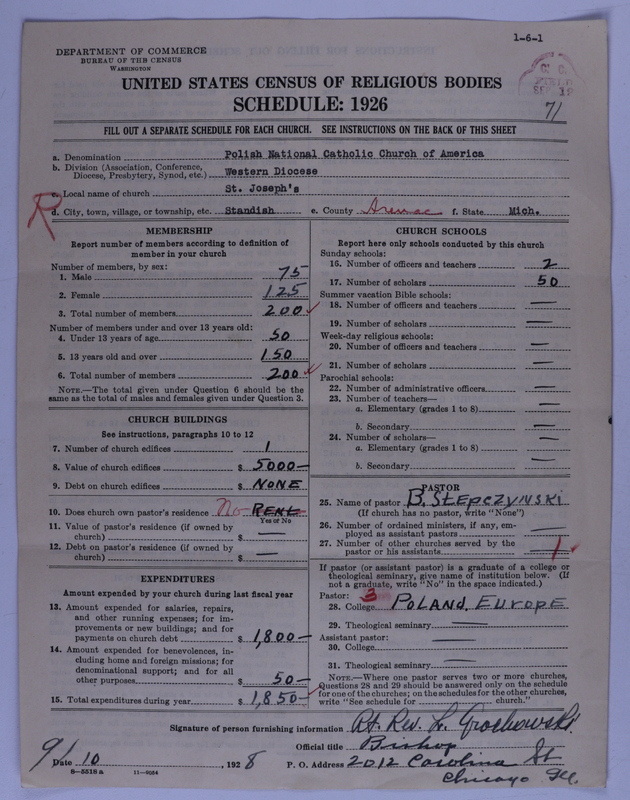 1-6-1
DEPARTMENT OF COMMERCE
BUREAU OF THE CENSUS
WASHINGTON
UNITED STATES CENSUS OF RELIGIOUS BODIES
SCHEDULE: 1926
71
FILL OUT A SEPARATE SCHEDULE FOR EACH CHURCH. SEE INSTRUCTIONS ON THE BACK OF THIS SHEET
a. Denomination Polish National Catholic Church of America
b. Division (Association, Conference, Diocese, Presbytery, Synod, etc.) Western Diocese
c. Local name of church St. Joseph's
R
d. City, town, village, or township, etc. Standish e. County Arenac f. State Mich.
MEMBERSHIP
Report number of members according to definition of
member in your church
Number of members, by sex:
1. Male 75
2. Female 125
3. Total number of members 200
Number of members under and over 13 years old:
4. Under 13 years of age 50
5. 13 years old and over 150
6. Total number of members 200
NOTE.—The total given under Question 6 should be the
same as the total of males and females given under Question 3.
CHURCH BUILDINGS
See instructions, paragraphs 10 to 12
7. Number of church edifices 1
8. Value of church edifices $ 5000—
9. Debt on church edifices $ NONE
10. Does church own pastor's residence No RENT
Yes or No
11. Value of pastor's residence (if owned by
church) $ —
12. Debt on pastor's residence (if owned by
church) $ —
EXPENDITURES
Amount expended by your church during last fiscal year
13. Amount expended for salaries, repairs,
and other running expenses; for im-
provements or new buildings; and for
payments on church debt $ 1,800—
14. Amount expended for benevolences, in-
cluding home and foreign missions; for
denominational support; and for all
other purposes $ 50—
15. Total expenditures during year $ 1,850—
CHURCH SCHOOLS
Report here only schools conducted by this church
Sunday schools:
16. Number of officers and teachers 2
17. Number of scholars 50
Summer vacation Bible schools:
18. Number of officers and teachers —
19. Number of scholars —
Week-day religious schools:
20. Number of officers and teachers —
21. Number of scholars —
Parochial schools:
22. Number of administrative officers —
23. Number of teachers—
a. Elementary (grades 1 to 8) —
b. Secondary —
24. Number of scholars— —
a. Elementary (grades 1 to 8) —
b. Secondary —
PASTOR
25. Name of pastor B. STEPCZYNSKI
(If church has no pastor, write "None")
26. Number of ordained ministers, if any, em-
ployed as assistant pastors —
27. Number of other churches served by the
pastor or his assistants 1
If pastor (or assistant pastor) is a graduate of a college or
theological seminary, give name of institution below. (If
not a graduate, write "No" in the space indicated.)
Pastor: 3
28. College POLAND, EUROPE
29. Theological seminary —
Assistant pastor:
30. College —
31. Theological seminary —
NOTE.—Where one pastor serves two or more churches,
Questions 28 and 29 should be answered only on the schedule
for one of the churches; on the schedules for the other churches,
write "See schedule for church."
Signature of person furnishing information Rt. Rev. L. Grochowski
Official title Bishop
Date 9/10, 1928 P. O. Address 2012 Carolina St
Chicago Ill.
8-5518 a 11-9034